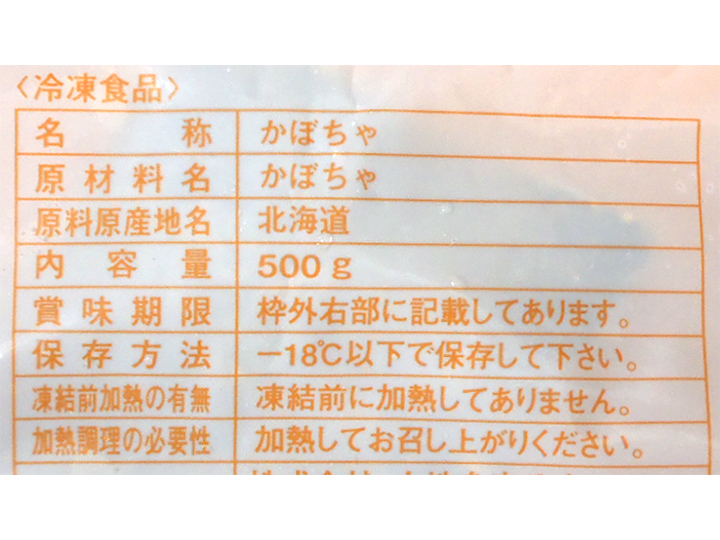 〈冷凍食品〉
名称 かぼちゃ
原材料名 かぼちゃ
原料原産地名 北海道
内容量 500g
賞味期限 枠外右部に記載してあります。
保存方法 −18℃以下で保存して下さい。
凍結前加熱の有無 凍結前に加熱してありません。
加熱調理の必要性 加熱してお召し上がりください。